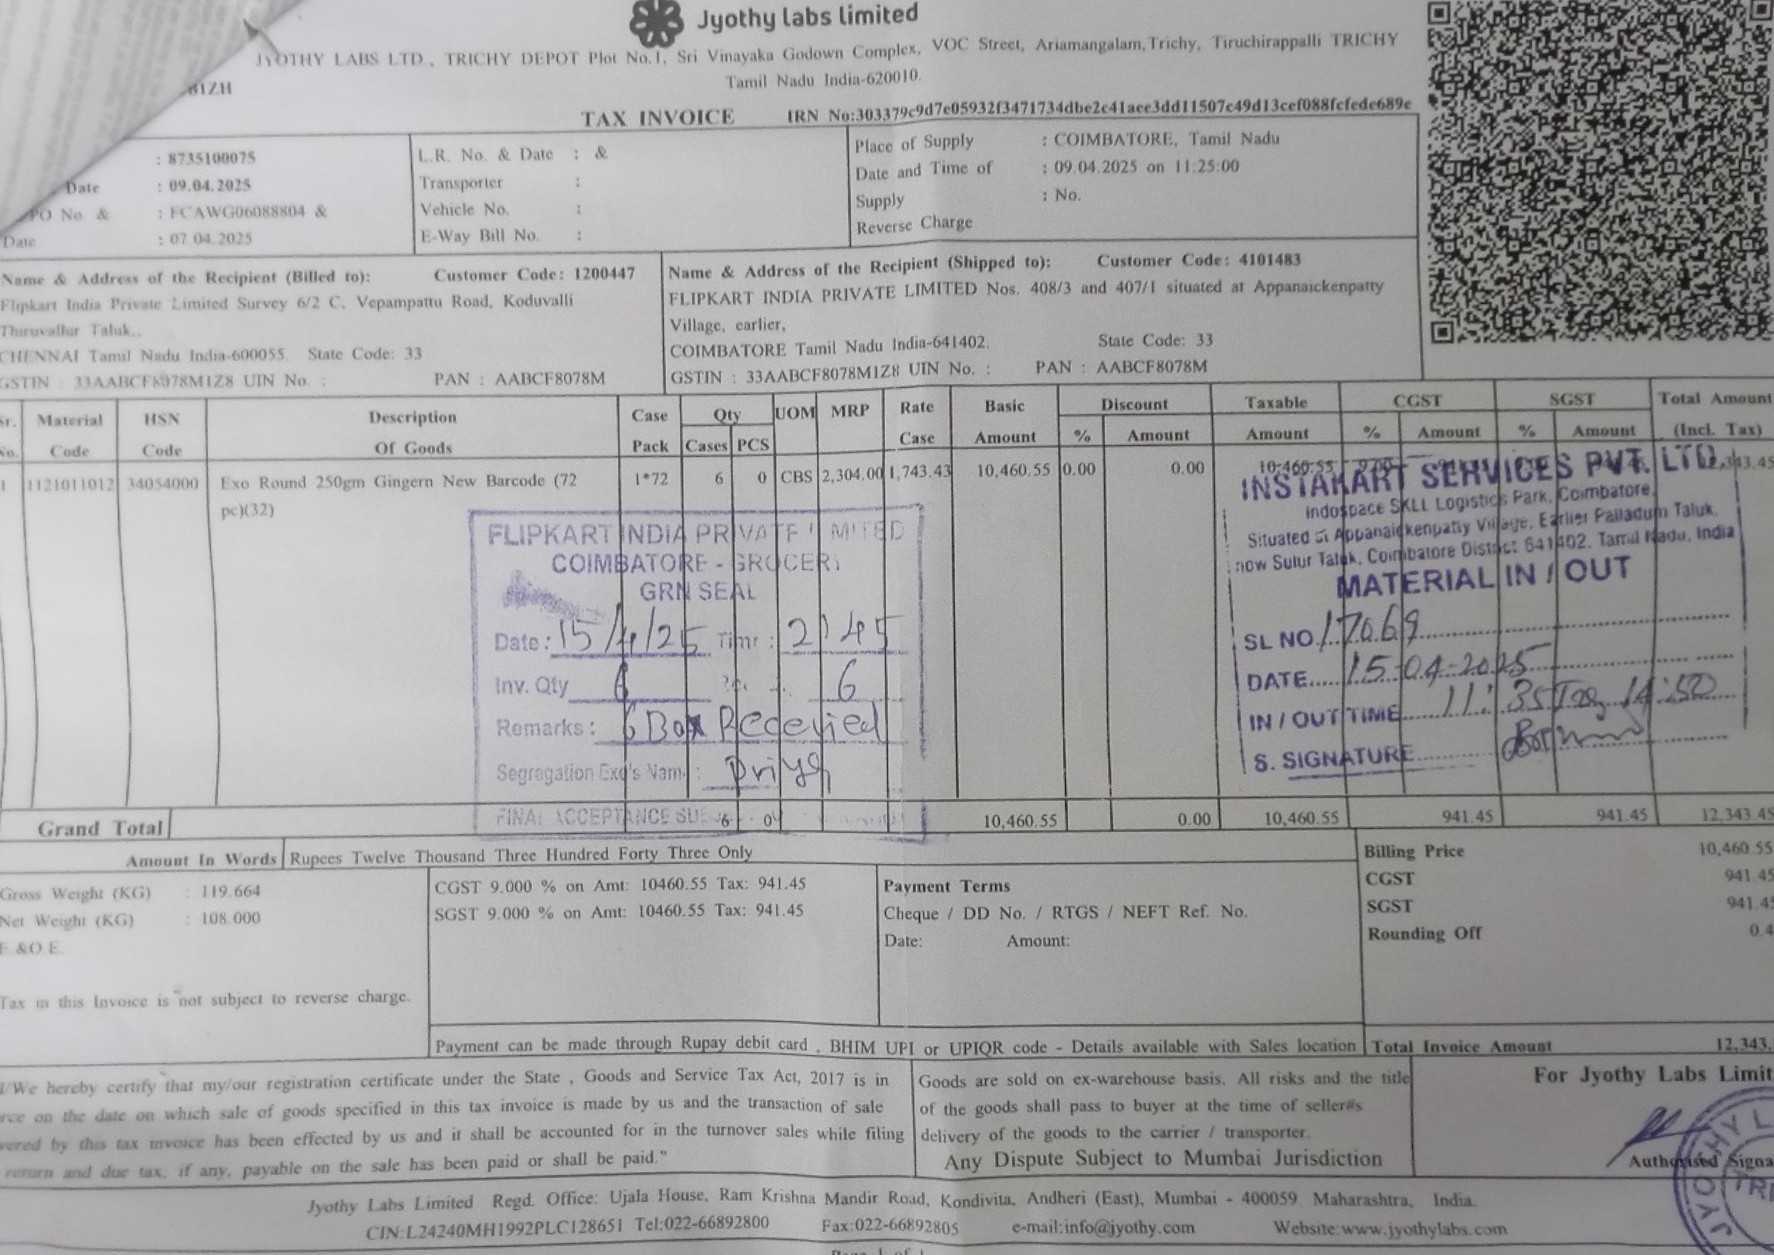 Jyothy Labs Limited
JYOTHY LABS LTD, TRICHY DEPOT Plot No.1, Sri Vinayaka Godown Complex, VOC Street, Ariamangalam,Trichy, Tiruchirappalli TRICHY
Tamil Nadu India-620010.
TAX INVOICE IRN No:303379c9d7e05932f3471734dbe2c41aee3dd11507c49d13cef088fcfede689e
: 8735100075
Date : 09.04.2025
PO No & : FCAWG06088804 &
Date : 07.04.2025
L.R. No. & Date : &
Transporter :
Vehicle No. :
E-Way Bill No. :
Place of Supply : COIMBATORE, Tamil Nadu
Date and Time of : 09.04.2025 on 11:25:00
Supply : No.
Reverse Charge
Name & Address of the Recipient (Billed to): Customer Code: 1200447
Flipkart India Private Limited Survey 6/2 C, Vepampattu Road, Koduvalli
Thiruvallur Taluk,.
CHENNAI Tamil Nadu India-600055. State Code: 33
GSTIN : 33AABCF8078M1Z8 UIN No. : PAN : AABCF8078M
Name & Address of the Recipient (Shipped to): Customer Code: 4101483
FLIPKART INDIA PRIVATE LIMITED Nos. 408/3 and 407/1 situated at Appanaickenpatty
Village, earlier,
COIMBATORE Tamil Nadu India-641402. State Code: 33
GSTIN : 33AABCF8078M1Z8 UIN No. : PAN : AABCF8078M
Sr. Material HSN Description Case Qty UOM MRP Rate Basic Discount Taxable CGST SGST Total Amount
No. Code Code Of Goods Pack Cases PCS Case Amount % Amount Amount % Amount % Amount (Incl. Tax)
1 1121011012 34054000 Exo Round 250gm Gingern New Barcode (72 1*72 6 0 CBS 2,304.00 1,743.43 10,460.55 0.00 0.00 10,460.55
pc)(32)
FLIPKART INDIA PRIVATE LIMITED
COIMBATORE - GROCERY
GRN SEAL
Date: 15/4/25 Time: 2:45
Inv. Qty 6 6
Remarks: 6 Box Recevied
Segregation Exe's Name: Priya
FINAL ACCEPTANCE
INSTAKART SERVICES PVT. LTD.
Indospace SKLL Logistics Park, Coimbatore,
Situated at Appanaickenpatty Village, Earlier Palladum Taluk,
now Sulur Taluk, Coimbatore District 641402. Tamil Nadu, India
MATERIAL IN / OUT
SL NO. 17069
DATE 15-04-2025
IN / OUT TIME 11:35 14:50
S. SIGNATURE
Grand Total 6 0 10,460.55 0.00 10,460.55 941.45 941.45 12,343.45
Amount In Words Rupees Twelve Thousand Three Hundred Forty Three Only
Gross Weight (KG) : 119.664
Net Weight (KG) : 108.000
E &O E.
Tax in this Invoice is not subject to reverse charge.
CGST 9.000 % on Amt: 10460.55 Tax: 941.45
SGST 9.000 % on Amt: 10460.55 Tax: 941.45
Payment Terms
Cheque / DD No. / RTGS / NEFT Ref. No.
Date: Amount:
Billing Price 10,460.55
CGST 941.45
SGST 941.45
Rounding Off 0.4
Payment can be made through Rupay debit card , BHIM UPI or UPIQR code - Details available with Sales location
Total Invoice Amount 12,343.
I/We hereby certify that my/our registration certificate under the State , Goods and Service Tax Act, 2017 is in
rce on the date on which sale of goods specified in this tax invoice is made by us and the transaction of sale
vered by this tax invoice has been effected by us and it shall be accounted for in the turnover sales while filing
return and due tax, if any, payable on the sale has been paid or shall be paid."
Goods are sold on ex-warehouse basis. All risks and the title
of the goods shall pass to buyer at the time of seller#s
delivery of the goods to the carrier / transporter.
Any Dispute Subject to Mumbai Jurisdiction
For Jyothy Labs Limit
Authorised Signa
Jyothy Labs Limited Regd. Office: Ujala House, Ram Krishna Mandir Road, Kondivita, Andheri (East), Mumbai - 400059 Maharashtra, India.
CIN:L24240MH1992PLC128651 Tel:022-66892800 Fax:022-66892805 e-mail:info@jyothy.com Website:www.jyothylabs.com